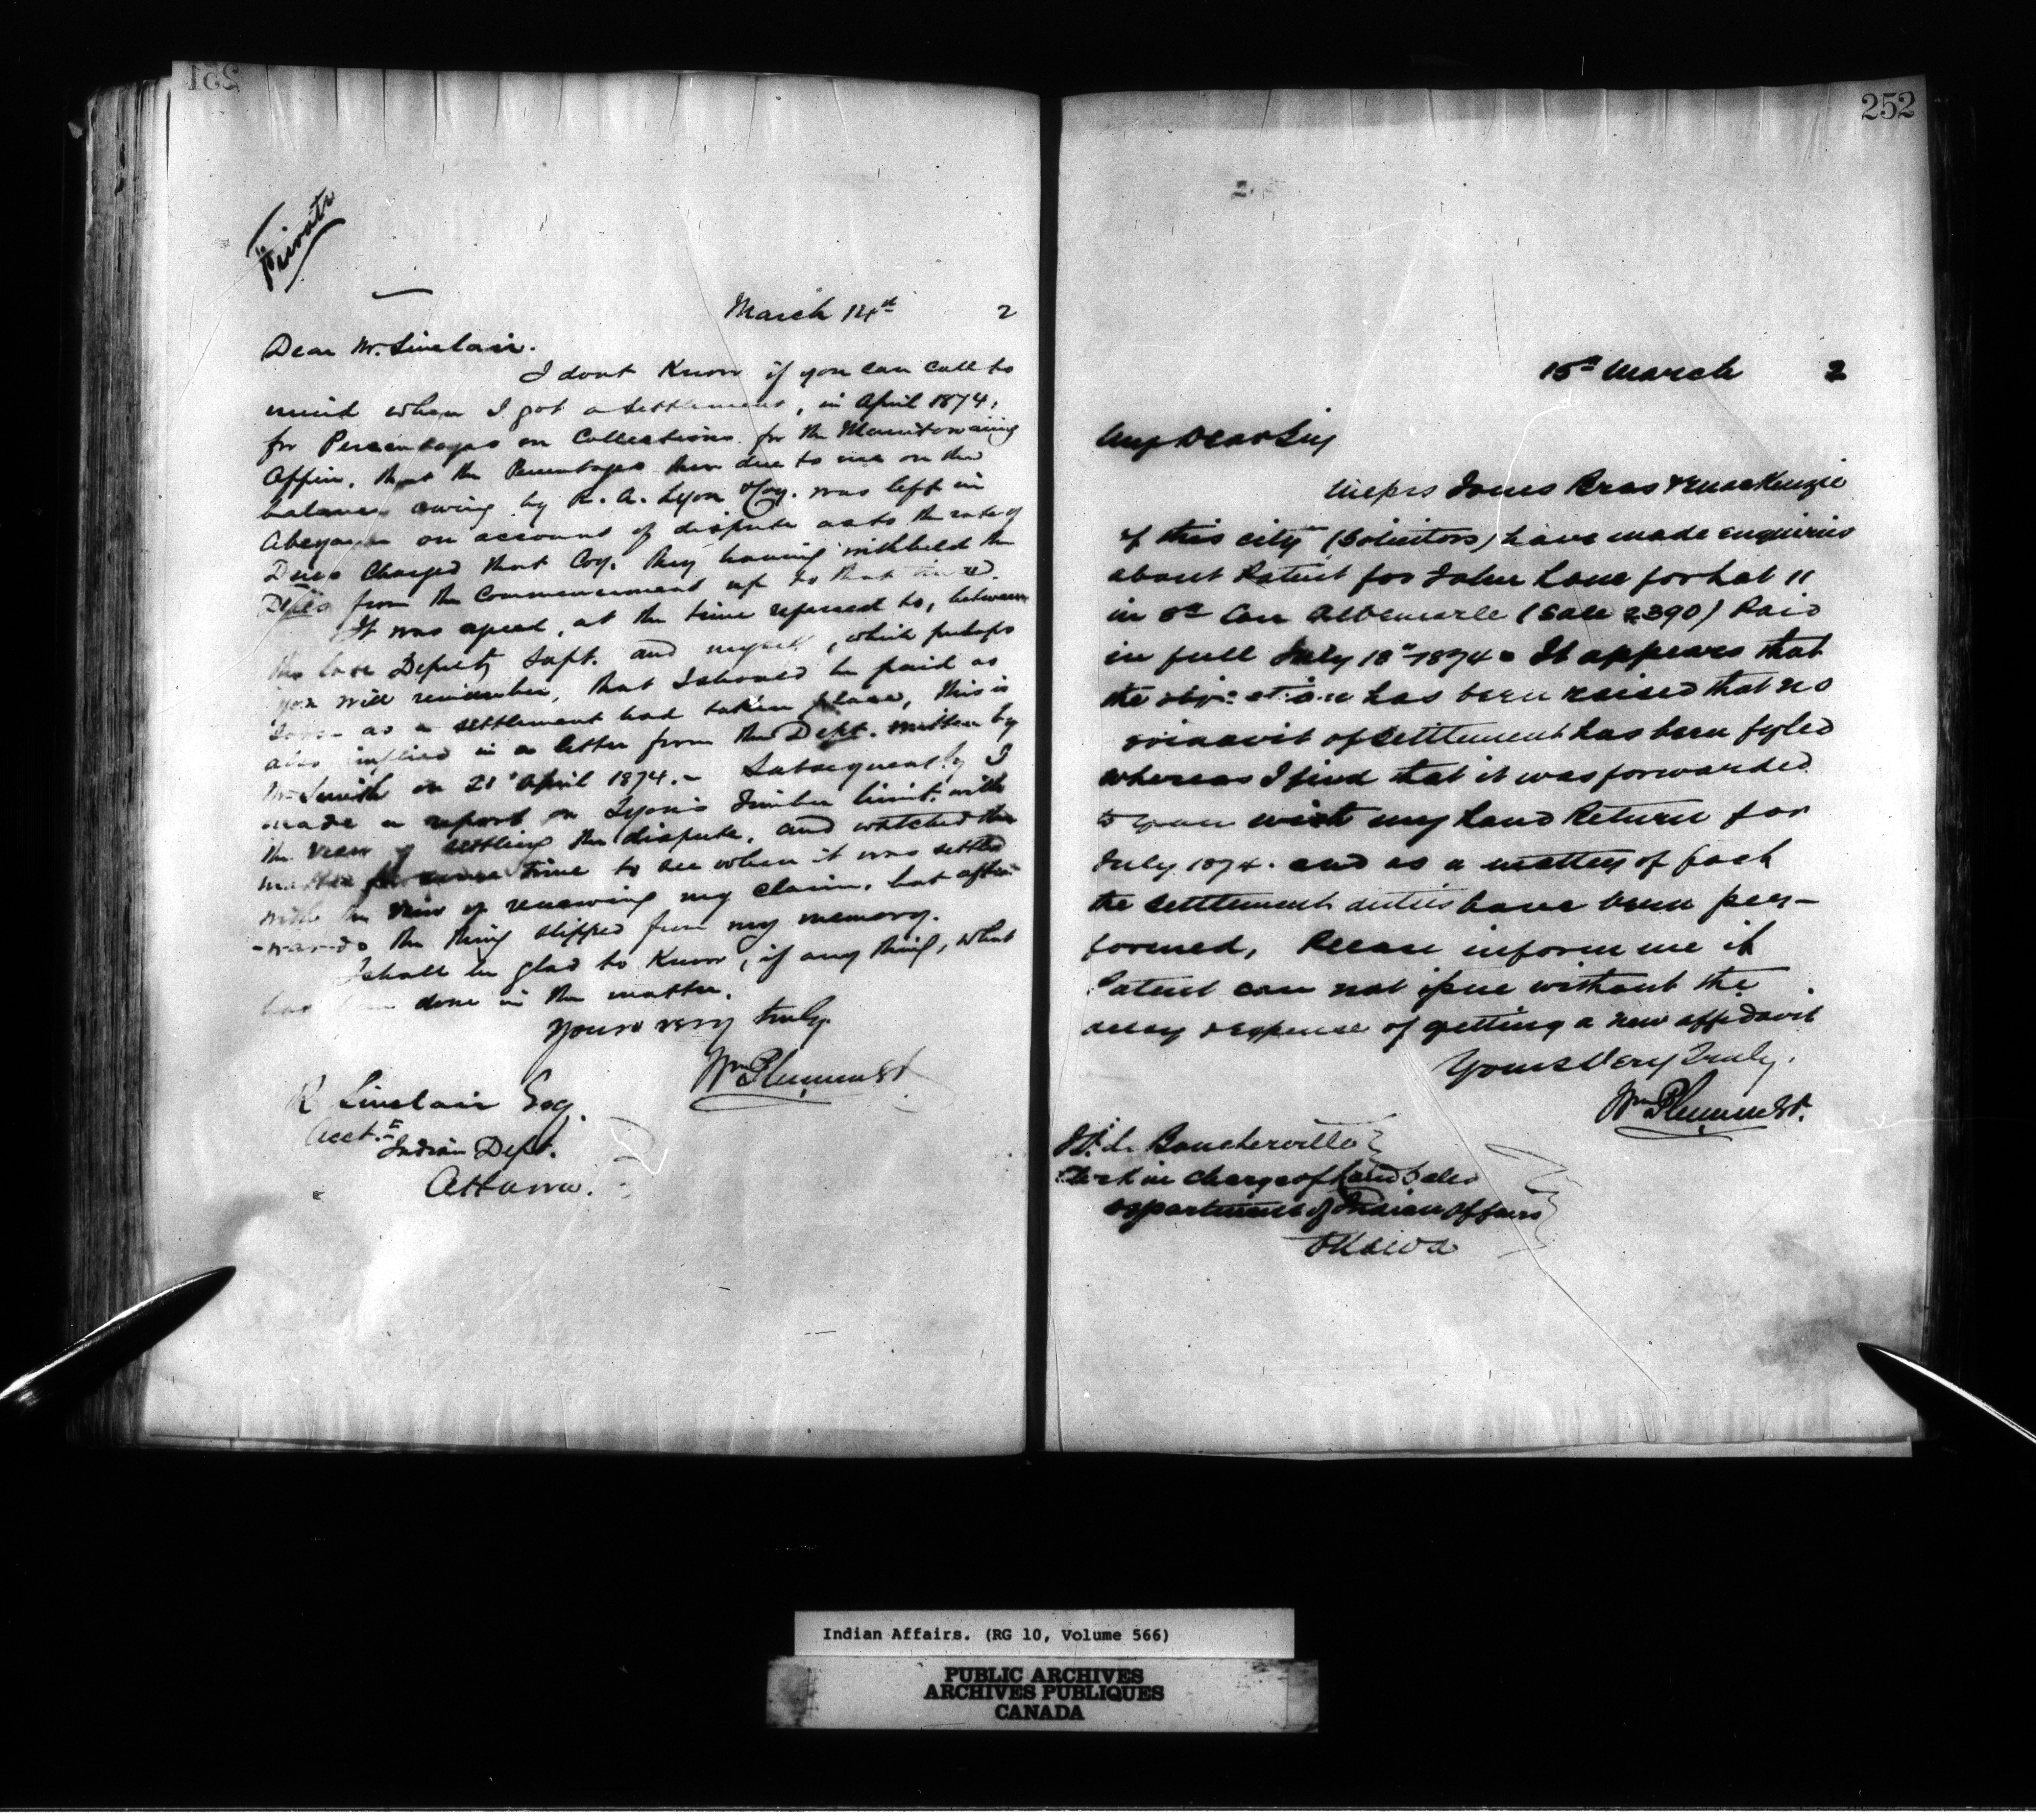 251
Private
March 14th 2
Dear Mr. Sinclair.
I dont Know if you can call to
mind when I got a settlement, in April 1874,
for Percentages on Collections for the Manitowaning
Office, that the Percentages then due to me on the
balance owing by R. A. Lyon & Coy. was left in
Abeyance on account of dispute as to the rate of
Dues Charged that Coy. they having withheld the
from the Commencement up to that
It was agreed, at the time referred to, between
the late Deputy Supt. and myself, which perhaps
you will remember, that I should be paid as
soon as a settlement had taken place, this is
also implied in a letter from the Dept. written by
Mr Smith on 21st April 1874. - Subsequently I
made a report on Lyon's Timber limit. with
the view of settling the dispute, and watched the
matter for some time to see when it was settled
with the view of renewing my claim, but after
-wards the thing slipped from my memory.
I shall be glad to Know, if any thing, what
has been done in the matter.
Yours very truly
Wm Plummer
R Sinclair Esq.
Acct.
Indian Dept.
Ottawa.
252
15th March 2
My Dear Sir
Messrs Jones Bros & MacKenzie
of this city (Solicitors) have made enquiries
about Patent for John Lane for Lot 11
in 8th Con Albemarle (Sale 2390) Paid
in full July 18th 1874. It appears that
the objection has been raised that no
affidavit of settlement has been fyled
whereas I find that it was forwarded
to you with my Land Return for
July 1874. and as a matter of fact
the settlement duties have been per-
formed, Please inform me if
Patent can not issue without the
delay & expense of getting a new affidavit
Yours Very Truly,
Wm Plummer.
Boucherville
Clerk in charge of Land Sales
Department of Indian Affairs
Ottawa
Indian Affairs. (RG 10, Volume 566)
PUBLIC ARCHIVES
ARCHIVES PUBLIQUES
CANADA